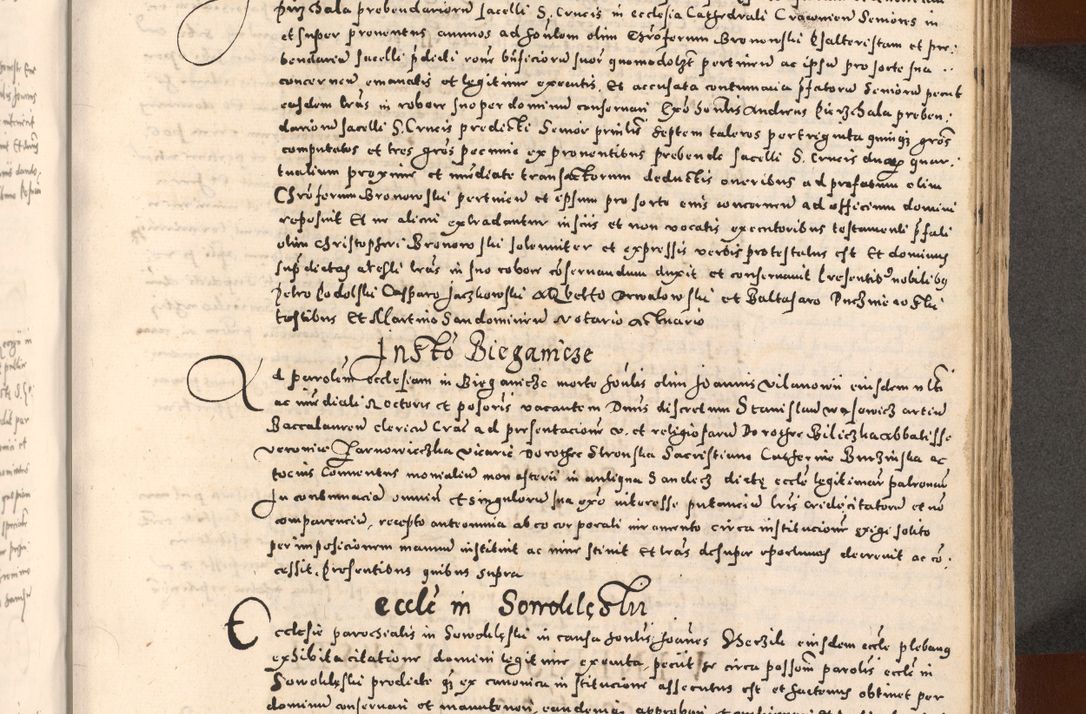 przSala prebendariorum sacelli S. Crucis in ecclesia Cathedrali Cracovien Seniores in
et super proventus annuos ad honlem olim Chroferum Bronowski psalteristam et pre:
bendarium sacelli pdicti rone bnficiorum suor quomodolzt pertinen ac ipsum pro sorte sua
concernen emanatis et legitime executis. Et accusata contumacia pfatorum Seniorum petiit
easdem lras in robore suo per dominum conservari Exo honlis Andreas PurzSala preben:
dariorum sacelli S. Crucis predicti Senior prnlis septem taleros per triginta quinq gros
computatos et tres gros pecunie ex proventibus prebende sacelli S. Crucis duar quar:
tualium proxime et imediate transactorum deductis oneribus ad prefatum olim
Chroferum Bronowski pertinen et ipsum pro sorte eius concernen ad officium domini
reposuit Et ne alicui extradantur insciis et non vocatis executoribus testamenti pfati
olim Christopheri Bronowski solemniter et expressis verbis protestatus est Et dominus
supdictas aresti lras in suo robore conservandum duxit et conservavit Presentis nobilibus
Petro Podolski Casparo Jaczkowski Alberto Drwalowski et Baltasaro Puchniewski
testibus Et Martino Sandomirien Notario Actuario
Insto Bieganicze
Ad parolem ecclesiam in Bieganicze morte honlis olim Joannis Vilanowii eiusdem ulti
ac imediati Rectoris et posoris vacantem Dnus discretum Stanislaum Wasowicz artium
Baccalaureum clericum Crac ad presentacionem v. et religiosarum Dorothee Biliczka abbatisse
Veronice Tarnowieczka vicarie Dorothee Stronska Sacristiane Catherine Buczinska ac
tocius Conventus monialium monasterii in antiqua Sandecz dicte eccle legitimar patronar
In contumaciam omnium et singulorum sua exo interesse putancium lris cridor citatorum et no
comparencium, recepto antroomnia ab eo corporali iuramento circa institucionem exigi solito
per imposicionem manuum instituit ac investivit Et lras desuper oportunas decrevit ac co:
cessit. Presentibus quibus supra
eccle in Sowoklęski
Ecclesie parochialis in Sowoklęski in causa honlis Joanes Herzik eiusdem eccle plebanus
exhibita citatione domini legitime executa, petiit se circa possom parolis eccle in
Sowoklęski predicte qz ex canonica institucione assecutus est et hactenus obtinet per
dominum conservari et manuteneri, eandemqz approbari